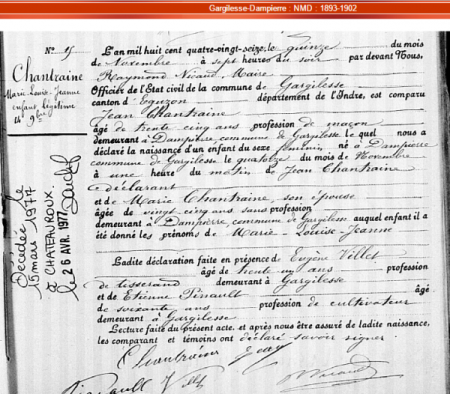 Gargilesse-Dampierre : NMD : 1893-1902
N° 15
Chantraine
Marie Louise Jeanne
enfant légitime
L'an mil huit cent quatre-vingt-seize, le quinze du mois
de Novembre à sept heures du soir par devant Nous,
Raymond Nicaud, Maire
Officier de l'Etat civil de la commune de Gargilesse
canton d'Eguzon département de l'Indre, est comparu
Jean Chantraine
âgé de trente cinq ans profession de maçon
demeurant à Dampierre, commune de Gargilesse, lequel nous a
déclaré la naissance d'un enfant du sexe féminin né à Dampierre
commune de Gargilesse le quatorze du mois de Novembre
à une heure du matin de Jean Chantraine
ce déclarant
et de Marie Chantraine, son épouse
âgée de vingt cinq ans sans profession
demeurant à Dampierre, commune de Gargilesse auquel enfant il a
été donné les prénoms de Marie Louise Jeanne
Ladite déclaration faite en présence de Eugène Villet
âgé de trente un ans profession
de tisserand demeurant à Gargilesse
et de Etienne Pinault âgé
de soixante ans profession de cultivateur
demeurant à Gargilesse
Lecture faite du présent acte, et après nous être assuré de ladite naissance,
les comparant et témoins ont déclaré savoir signer
Chantraine Jean
Pinault Villet
Nicaud
Décédée le
5 mars 1977
à CHATEAUROUX
le 26 AVR. 1977